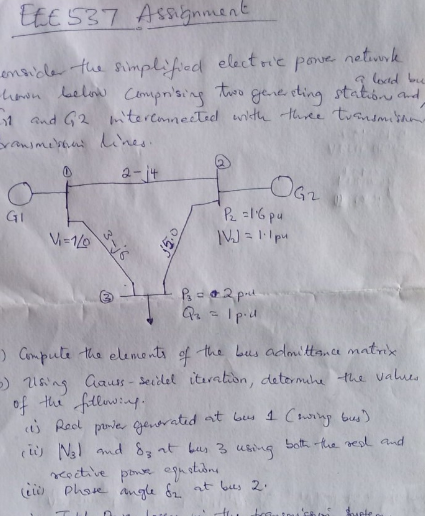 EEE 537 Assignment
onsider the simplified electric power network
hown below comprising two generating station and a load bu
and G2 interconnected with three transmission
ransmission lines.
①
2-j4
②
G1
G2
P2 = 1.6 pu
|V2| = 1.1 pu
V1 = 1∠0
3-j6
③
P3 = 2 p.u
Q3 = 1 p.u
) Compute the elements of the bus admittance matrix
) Using Gauss-seidel iteration, determine the values
of the following.
(i) Real power generated at bus 1 (swing bus)
(ii) |V3| and δ3 at bus 3 using both the real and
reactive power equations
(iii) Phase angle δ2 at bus 2.